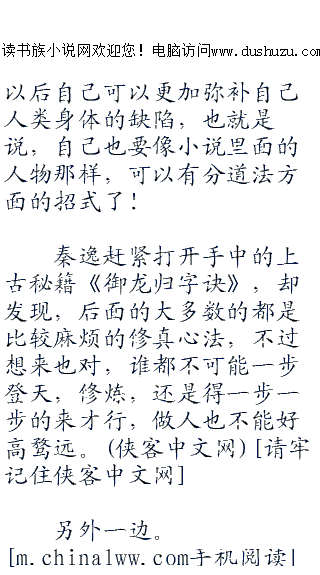 读书族小说网欢迎您！电脑访问www.dushuzu.com
以后自己可以更加弥补自己
人类身体的缺陷，也就是
说，自己也要像小说里面的
人物那样，可以有分道法方
面的招式了！
秦逸赶紧打开手中的上
古秘籍《御龙归字诀》，却
发现，后面的大多数的都是
比较麻烦的修真心法，不过
想来也对，谁都不可能一步
登天，修炼，还是得一步一
步的来才行，做人也不能好
高骛远。(侠客中文网)[请牢
记住侠客中文网]
另外一边。
[m.chinalww.com手机阅读|